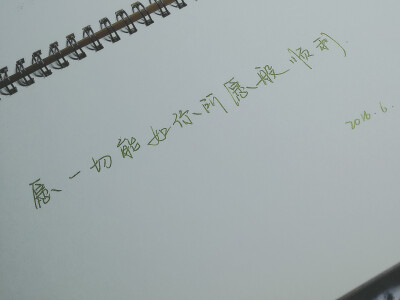 愿一切能如你所愿般顺利
2016.6.